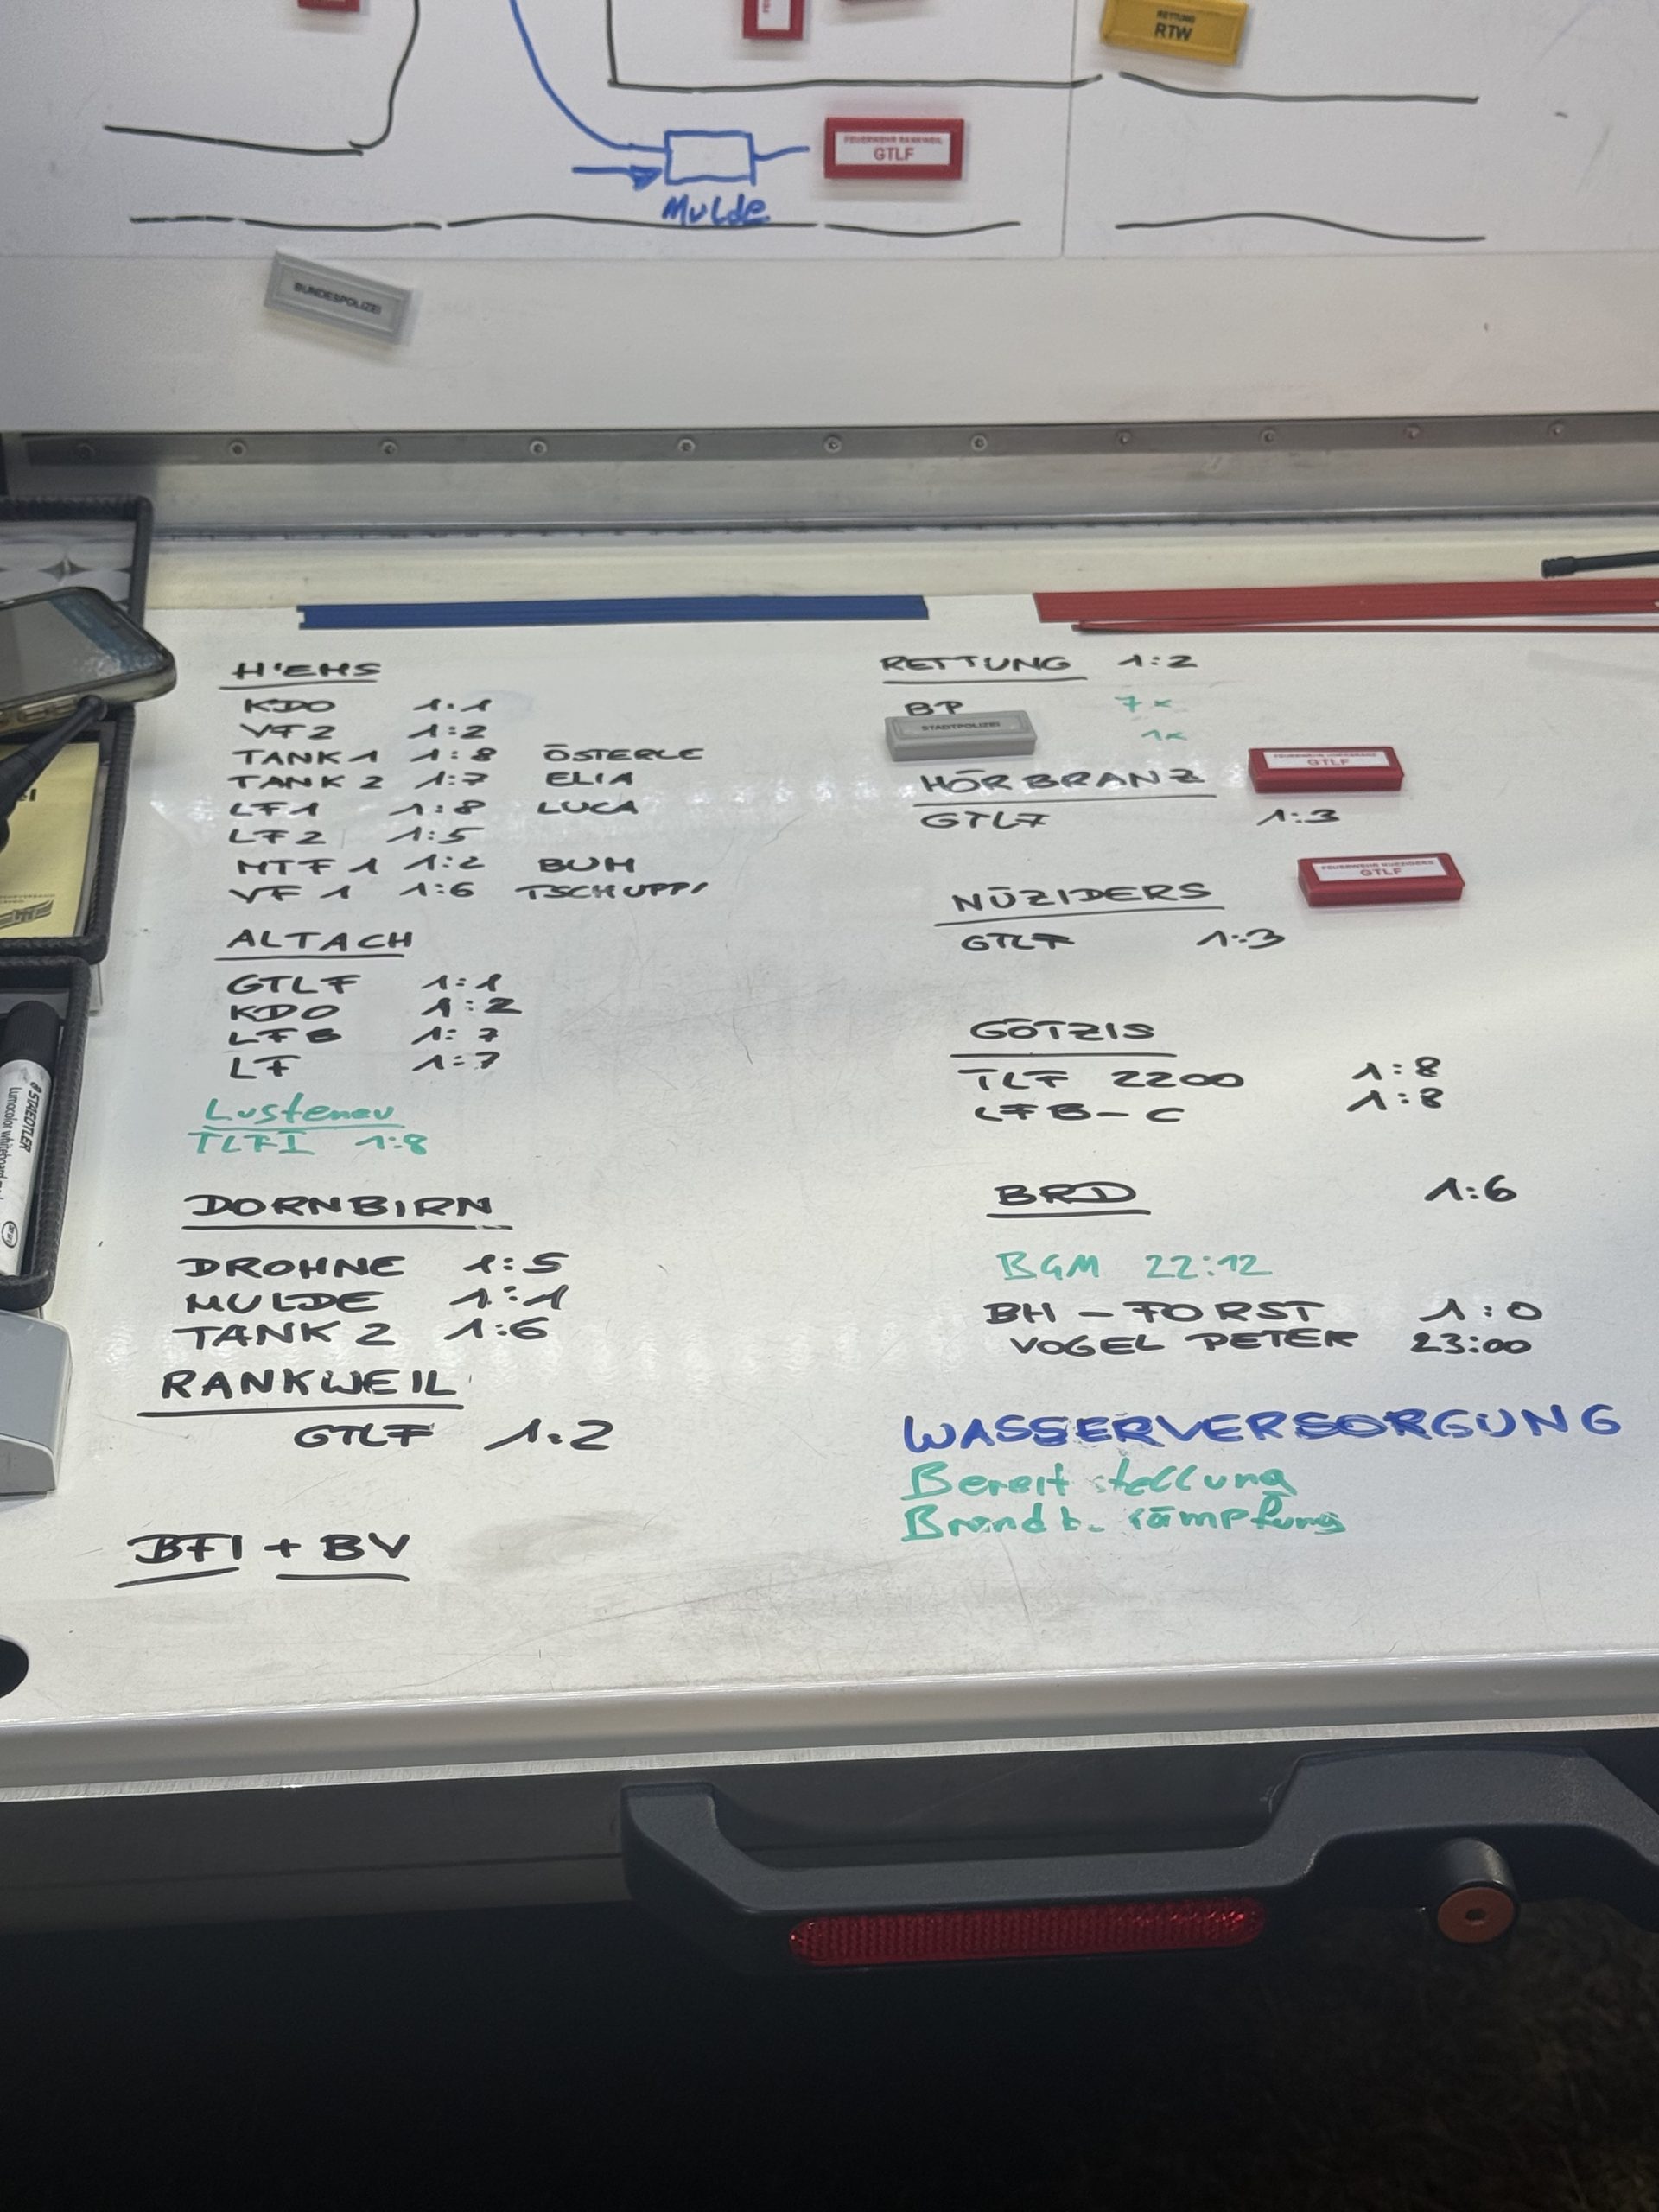 RETTUNG
RTW
FEUERWEHR RANKWEIL
GTLF
Mulde
BUNDESPOLIZEI
H'EMS
KDO 1:1
VF2 1:2
TANK 1 1:8 ÖSTERLE
TANK 2 1:7 ELIA
LF1 1:8 LUCA
LF2 1:5
MTF 1 1:2 BUH
VF 1 1:6 TSCHUPPI
ALTACH
GTLF 1:1
KDO 1:2
LFB 1:7
LF 1:7
Lustenau
TLFI 1:8
DORNBIRN
DROHNE 1:5
MULDE 1:1
TANK 2 1:6
RANKWEIL
GTLF 1:2
BFI + BV
RETTUNG 1:2
BP 7x
STADTPOLIZEI 1x
HÖRBRANZ
GTLF
GTLF 1:3
NÜZIDERS
FEUERWEHR NUEZIDERS
GTLF
GTLF 1:3
GÖTZIS
TLF 2200 1:8
LFB-C 1:8
BRD 1:6
BGM 22:12
BH - FORST 1:0
VOGEL PETER 23:00
WASSERVERSORGUNG
Bereitstellung
Brandb. kämpfung
STAEDTLER
Lumocolor whiteboard